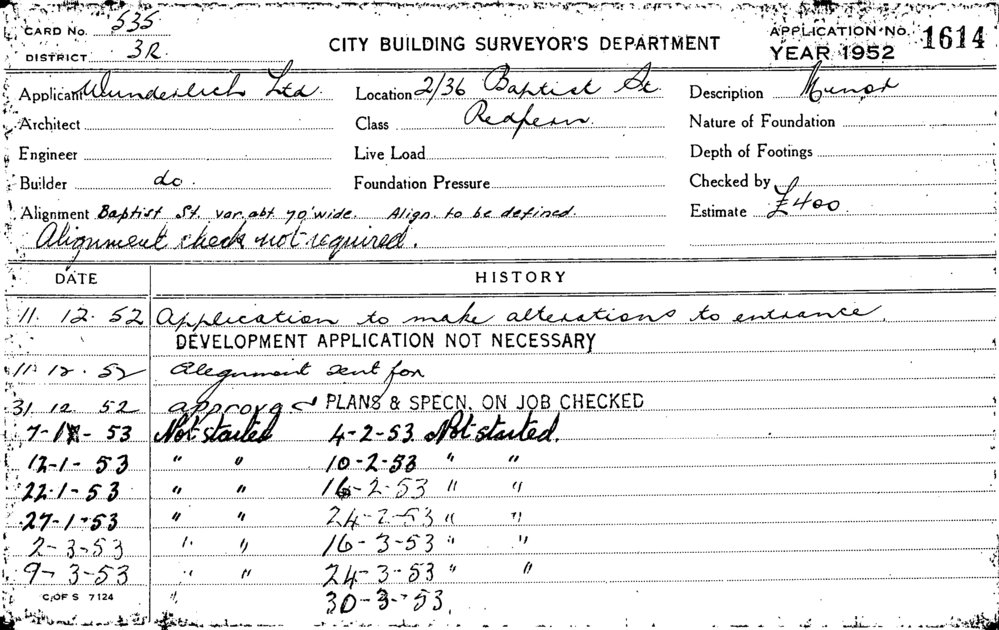 CARD No. 535
DISTRICT 3R
CITY BUILDING SURVEYOR'S DEPARTMENT
APPLICATION No. 1614
YEAR 1952
Applicant Wunderlich Ltd. Location 2/36 Baptist St. Description Minor
Architect Class Redfern. Nature of Foundation
Engineer Live Load Depth of Footings
Builder do. Foundation Pressure Checked by
Alignment Baptist St. var. abt 70' wide. Align. to be defined. Estimate £400
Alignment check not required.
DATE HISTORY
11. 12. 52 Application to make alterations to entrance.
DEVELOPMENT APPLICATION NOT NECESSARY
11. 12. 52 Alignment sent for
31. 12. 52 approved PLANS & SPECN. ON JOB CHECKED
7-1-53 Not started 4-2-53. Not started.
12-1-53 " " 10-2-53 " "
22-1-53 " " 16-2-53 " "
27-1-53 " " 24-2-53 " "
2-3-53 " " 16-3-53 " "
9-3-53 " " 24-3-53 " "
C. OF S 7124 " 30-3-53.